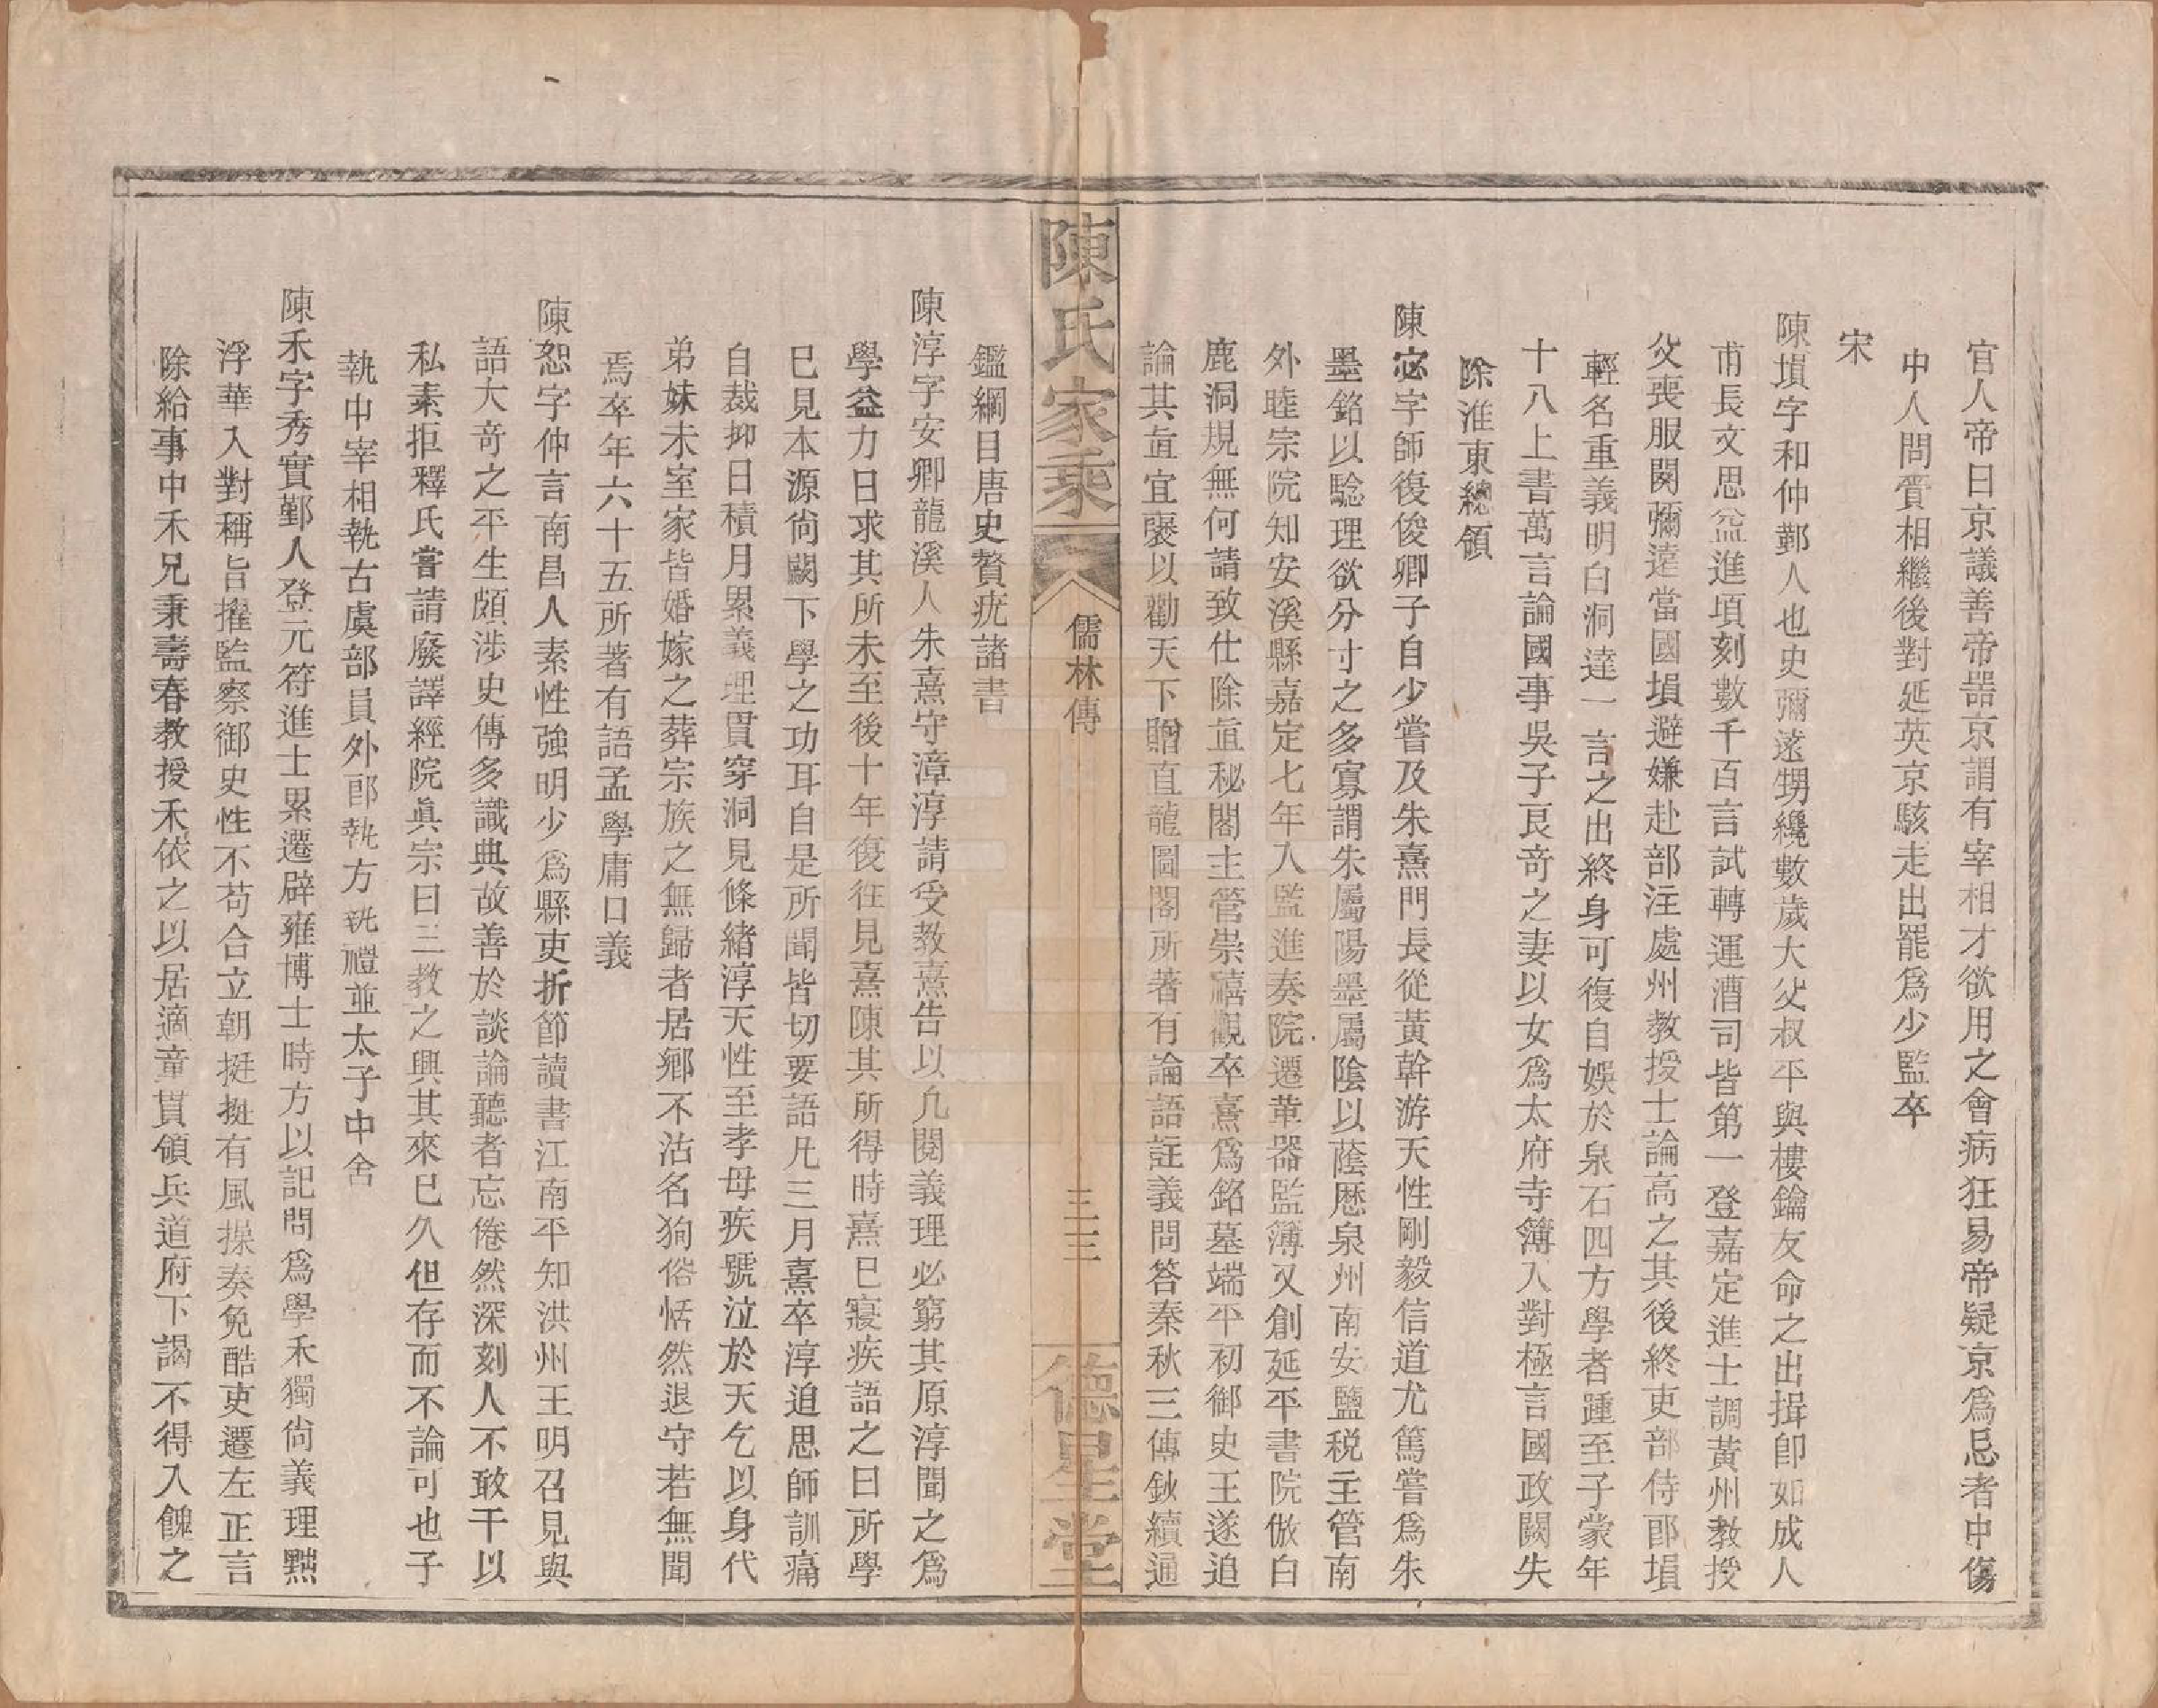 官人帝曰京議善帝器京謂有宰相才欲用之會病狂易帝疑京爲忌者中傷
中人問賫相繼後對延英京駭走出罷爲少監卒
宋
陳塤字和仲鄞人也史彌遠甥纔數歲大父叔平與樓鑰友命之出揖卽如成人
甫長文思益進頃刻數千百言試轉運漕司皆第一登嘉定進士調黃州教授
父喪服闋彌遠當國塤避嫌赴部注處州教授士論高之其後終吏部侍郎塤
輕名重義明白洞達一言之出終身可復自娛於泉石四方學者踵至子蒙年
十八上書萬言論國事吳子良奇之妻以女爲太府寺簿入對極言國政闕失
除淮東總領
陳宓字師復俊卿子自少嘗及朱熹門長從黃幹游天性剛毅信道尤篤嘗爲朱
墨銘以騐理欲分寸之多寡謂朱屬陽墨屬陰以蔭歷泉州南安鹽稅主管南
外睦宗院知安溪縣嘉定七年入監進奏院遷軍器監簿又創延平書院倣白
鹿洞規無何請致仕除直秘閣主管崇禧觀卒熹爲銘墓端平初御史王遂追
論其直宜襃以勸天下贈直龍圖閣所著有論語註義問答秦秋三傳鈥續通
陳氏家乘
儒林傳
三三
德星堂
鑑綱目唐史贅疣諸書
陳淳字安卿龍溪人朱熹守漳淳請受教熹告以凡閱義理必窮其原淳聞之爲
學益力日求其所未至後十年復往見熹陳其所得時熹已寢疾語之曰所學
已見本源尙闕下學之功耳自是所聞皆切要語凡三月熹卒淳追思師訓痛
自裁抑日積月累義理貫穿洞見條緒淳天性至孝母疾號泣於天乞以身代
弟妹未室家皆婚嫁之葬宗族之無歸者居鄉不沽名狥俗恬然退守若無聞
焉卒年六十五所著有語孟學庸口義
陳恕字仲言南昌人素性強明少爲縣吏折節讀書江南平知洪州王明召見與
語大奇之平生頗涉史傳多識典故善於談論聽者忘倦然深刻人不敢干以
私素拒釋氏嘗請廢譯經院眞宗曰三教之興其來已久但存而不論可也子
執中宰相執古虞部員外郎執方執禮並太子中舍
陳禾字秀實鄞人登元符進士累遷辟雍博士時方以記問爲學禾獨尙義理黜
浮華入對稱旨擢監察御史性不苟合立朝挺挺有風操奏免酷吏遷左正言
除給事中禾兄秉壽春教授禾依之以居適童貫領兵道府下謁不得入餽之